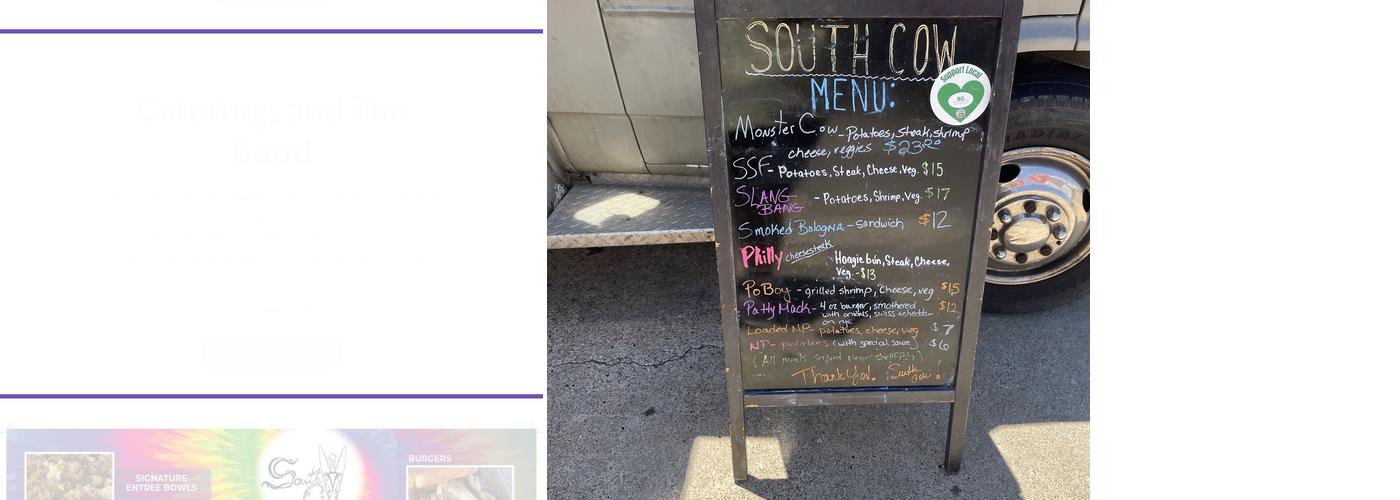 Catering, and The
Band
SIGNATURE
ENTREE BOWLS
South
BURGERS
SOUTH COW
MENU:
Support Local
BG
Monster Cow - Potatoes, Steak, shrimp
cheese, veggies $23.00
SSF - Potatoes, Steak, Cheese, Veg. $15
SLANG BANG - Potatoes, Shrimp, Veg. $17
Smoked Bologna - Sandwich $12
Philly cheesesteak Hoagie bun, Steak, Cheese,
Veg. - $13
Po Boy - grilled shrimp, Cheese, veg $15
Patty Mack - 4 oz burger, smothered $12
with onions, swiss + chedda
on rye
Loaded NP - potatoes, cheese, veg $7
NP - potatoes (with special sauce) $6
(All meals served near shellfish)
Thank You! South Cow!
RADIAL